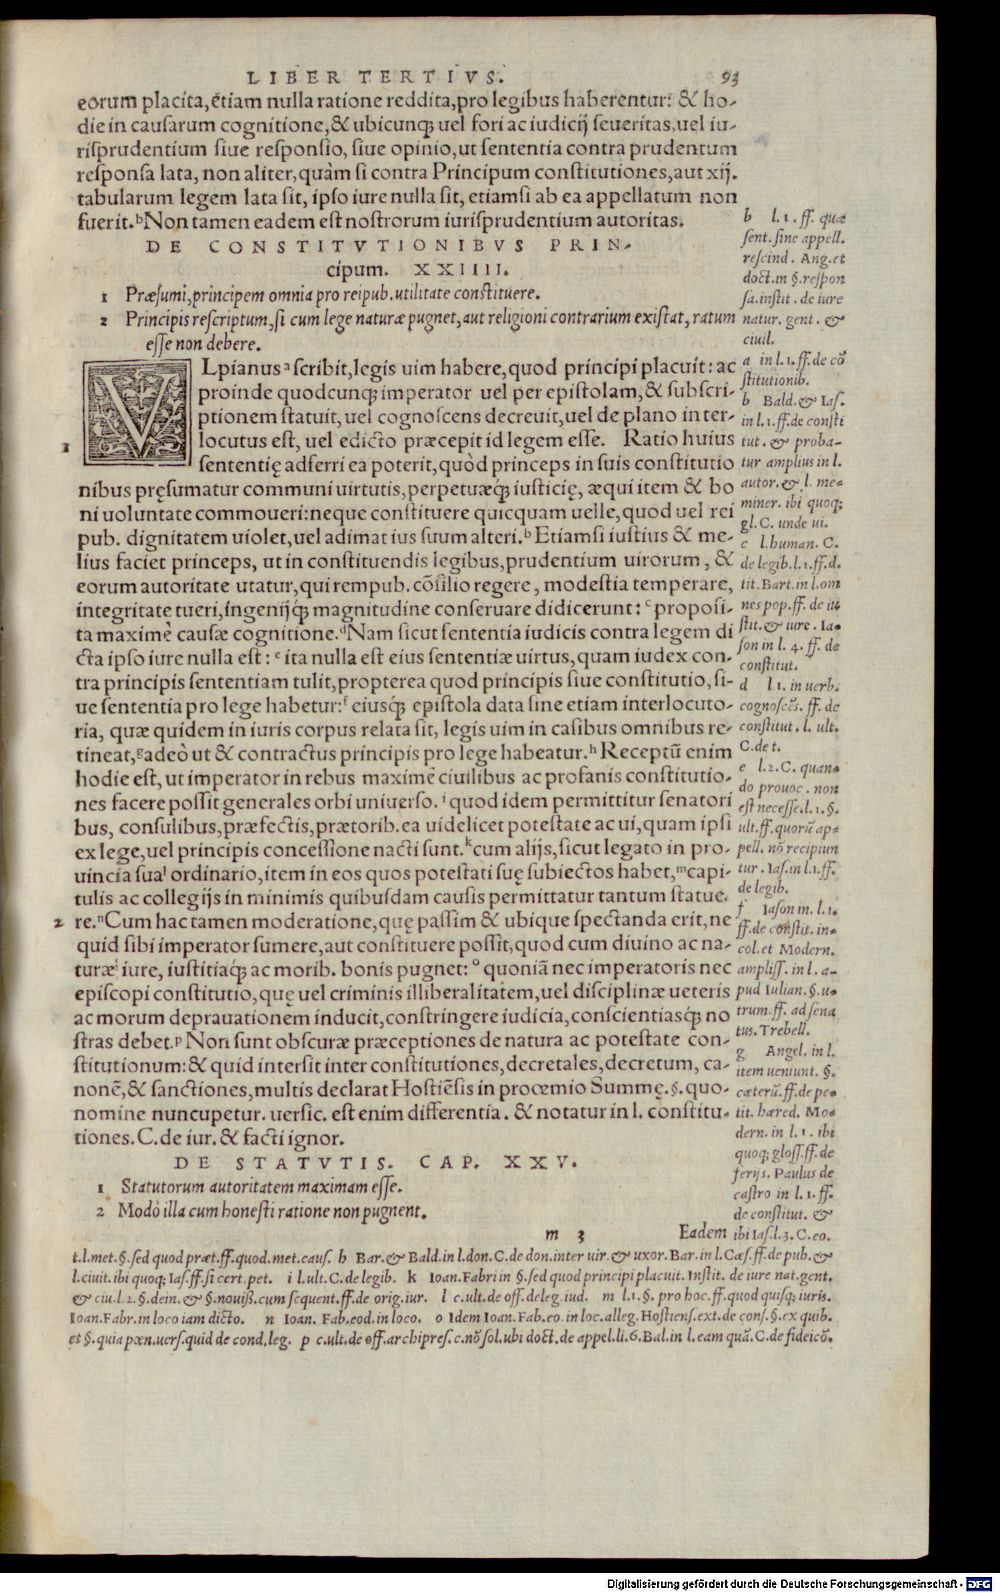 LIBER TERTIVS. 93
eorum placita, etiam nulla ratione reddita, pro legibus haberentur: & ho-
die in causarum cognitione, & ubicunq; uel fori ac iudicij seueritas, uel iu-
risprudentium siue responsio, siue opinio, ut sententia contra prudentum
responsa lata, non aliter, quàm si contra Principum constitutiones, aut xij.
tabularum legem lata sit, ipso iure nulla sit, etiamsi ab ea appellatum non
fuerit. b Non tamen eadem est nostrorum iurisprudentium autoritas.
DE CONSTITVTIONIBVS PRIN-
cipum. XXIIII.
1 Præsumi, principem omnia pro reipub. utilitate constituere.
2 Principis rescriptum, si cum lege naturæ pugnet, aut religioni contrarium existat, ratum
esse non debere.
VLpianus a scribit, legis uim habere, quod principi placuit: ac
proinde quodcunq; imperator uel per epistolam, & subscri-
ptionem statuit, uel cognoscens decreuit, uel de plano inter-
1 locutus est, uel edicto præcepit id legem esse. Ratio huius
sententię adferri ea poterit, quòd princeps in suis constitutio
nibus pręsumatur communi uirtutis, perpetuæq́; iusticię, æqui item & bo
ni uoluntate commoueri: neque constituere quicquam uelle, quod uel rei
pub. dignitatem uiolet, uel adimat ius suum alteri. b Etiamsi iustius & me-
lius faciet princeps, ut in constituendis legibus, prudentium uirorum, &
eorum autoritate utatur, qui rempub. cōsilio regere, modestia temperare,
integritate tueri, ingenijq́; magnitudine conseruare didicerunt: c proposi-
ta maximè causæ cognitione. d Nam sicut sententia iudicis contra legem di
cta ipso iure nulla est: e ita nulla est eius sententiæ uirtus, quam iudex con-
tra principis sententiam tulit, propterea quod principis siue constitutio, si-
ue sententia pro lege habetur: f eiusq́; epistola data sine etiam interlocuto-
ria, quæ quidem in iuris corpus relata sit, legis uim in casibus omnibus re-
tineat, g adeò ut & contractus principis pro lege habeatur. h Receptū enim
hodie est, ut imperator in rebus maximè ciuilibus ac profanis constitutio-
nes facere possit generales orbi uniuerso. i quod idem permittitur senatori
bus, consulibus, præfectis, prætorib. ea uidelicet potestate ac ui, quam ipsi
ex lege, uel principis concessione nacti sunt. k cum alijs, sicut legato in pro-
uincia sua l ordinario, item in eos quos potestati suę subiectos habet, m capi-
tulis ac collegijs in minimis quibusdam causis permittatur tantum statue-
2 re. n Cum hac tamen moderatione, quę passim & ubique spectanda erit, ne
quid sibi imperator sumere, aut constituere possit, quod cum diuino ac na-
turæ iure, iustitiaq́; ac morib. bonis pugnet: o quoniā nec imperatoris nec
episcopi constitutio, quę uel criminis illiberalitatem, uel disciplinæ ueteris
ac morum deprauationem inducit, constringere iudicia, conscientiasq́; no
stras debet. p Non sunt obscuræ præceptiones de natura ac potestate con-
stitutionum: & quid intersit inter constitutiones, decretales, decretum, ca-
nonē, & sanctiones, multis declarat Hostiēsis in prooemio Summę. §. quo-
nomine nuncupetur. uersic. est enim differentia. & notatur in l. constitu-
tiones. C. de iur. & facti ignor.
DE STATVTIS. CAP. XXV.
1 Statutorum autoritatem maximam esse.
2 Modò illa cum honesti ratione non pugnent.
m 3 Eadem
b l. 1. ff. quæ
sent. sine appell.
rescind. Ang. et
doct. in §. respon
sa. instit. de iure
natur. gent. &
ciuil.
a in l. 1. ff. de cō
stitutionib.
b Bald. & Ias.
in l. 1. ff. de consti
tut. & proba-
tur amplius in l.
autor. & l. me-
miner. ibi quoq;
gl. C. unde ui.
c l. human. C.
de legib. l. 1. ff. d.
tit. Bart. in l. om
nes pop. ff. de iu
stit. & iure. Ia-
son in l. 4. ff. de
constitut.
d l. 1. in uerb.
cognoscēs. ff. de
constitut. l. ult.
C. de t.
e l. 2. C. quan-
do prouoc. non
est necesse. l. 1. §.
ult. ff. quorū ap-
pell. nō recipiun
tur. Ias. in l. 1. ff.
de legib.
f Iason in. l. 1.
ff. de constit. in-
col. et Modern.
ampliss. in l. a-
pud Iulian. §. u-
trum. ff. ad sena
tus. Trebell.
g Angel. in l.
item ueniunt. §.
cæterū. ff. de pe-
tit. hæred. Mo-
dern. in l. 1. ibi
quoq; gloss. ff. de
ferijs. Paulus de
castro in l. 1. ff.
de constitut. &
ibi Ias. l. 3. C. eo.
t. l. met. §. sed quod præt. ff. quod. met. caus. h Bar. & Bald. in l. don. C. de don. inter uir. & uxor. Bar. in l. Cæs. ff. de pub. &
l. ciuit. ibi quoq; Ias. ff. si cert. pet. i l. ult. C. de legib. k Ioan. Fabri in §. sed quod principi placuit. Instit. de iure nat. gent.
& ciu. l. 2. §. dein. & §. nouiß. cum sequent. ff. de orig. iur. l c. ult. de off. deleg. iud. m l. 1. §. pro hoc. ff. quod quisq; iuris.
Ioan. Fabr. in loco iam dicto. n Ioan. Fab. eod. in loco. o Idem Ioan. Fab. eo. in loc. alleg. Hostiens. ext. de cons. §. ex quib.
et §. quia pœn. uers. quid de cond. leg. p c. ult. de off. archipres. c. nō sol. ubi doct. de appel. li. 6. Bal. in l. eam quā. C. de fideicō.
Digitalisierung gefördert durch die Deutsche Forschungsgemeinschaft - DFG